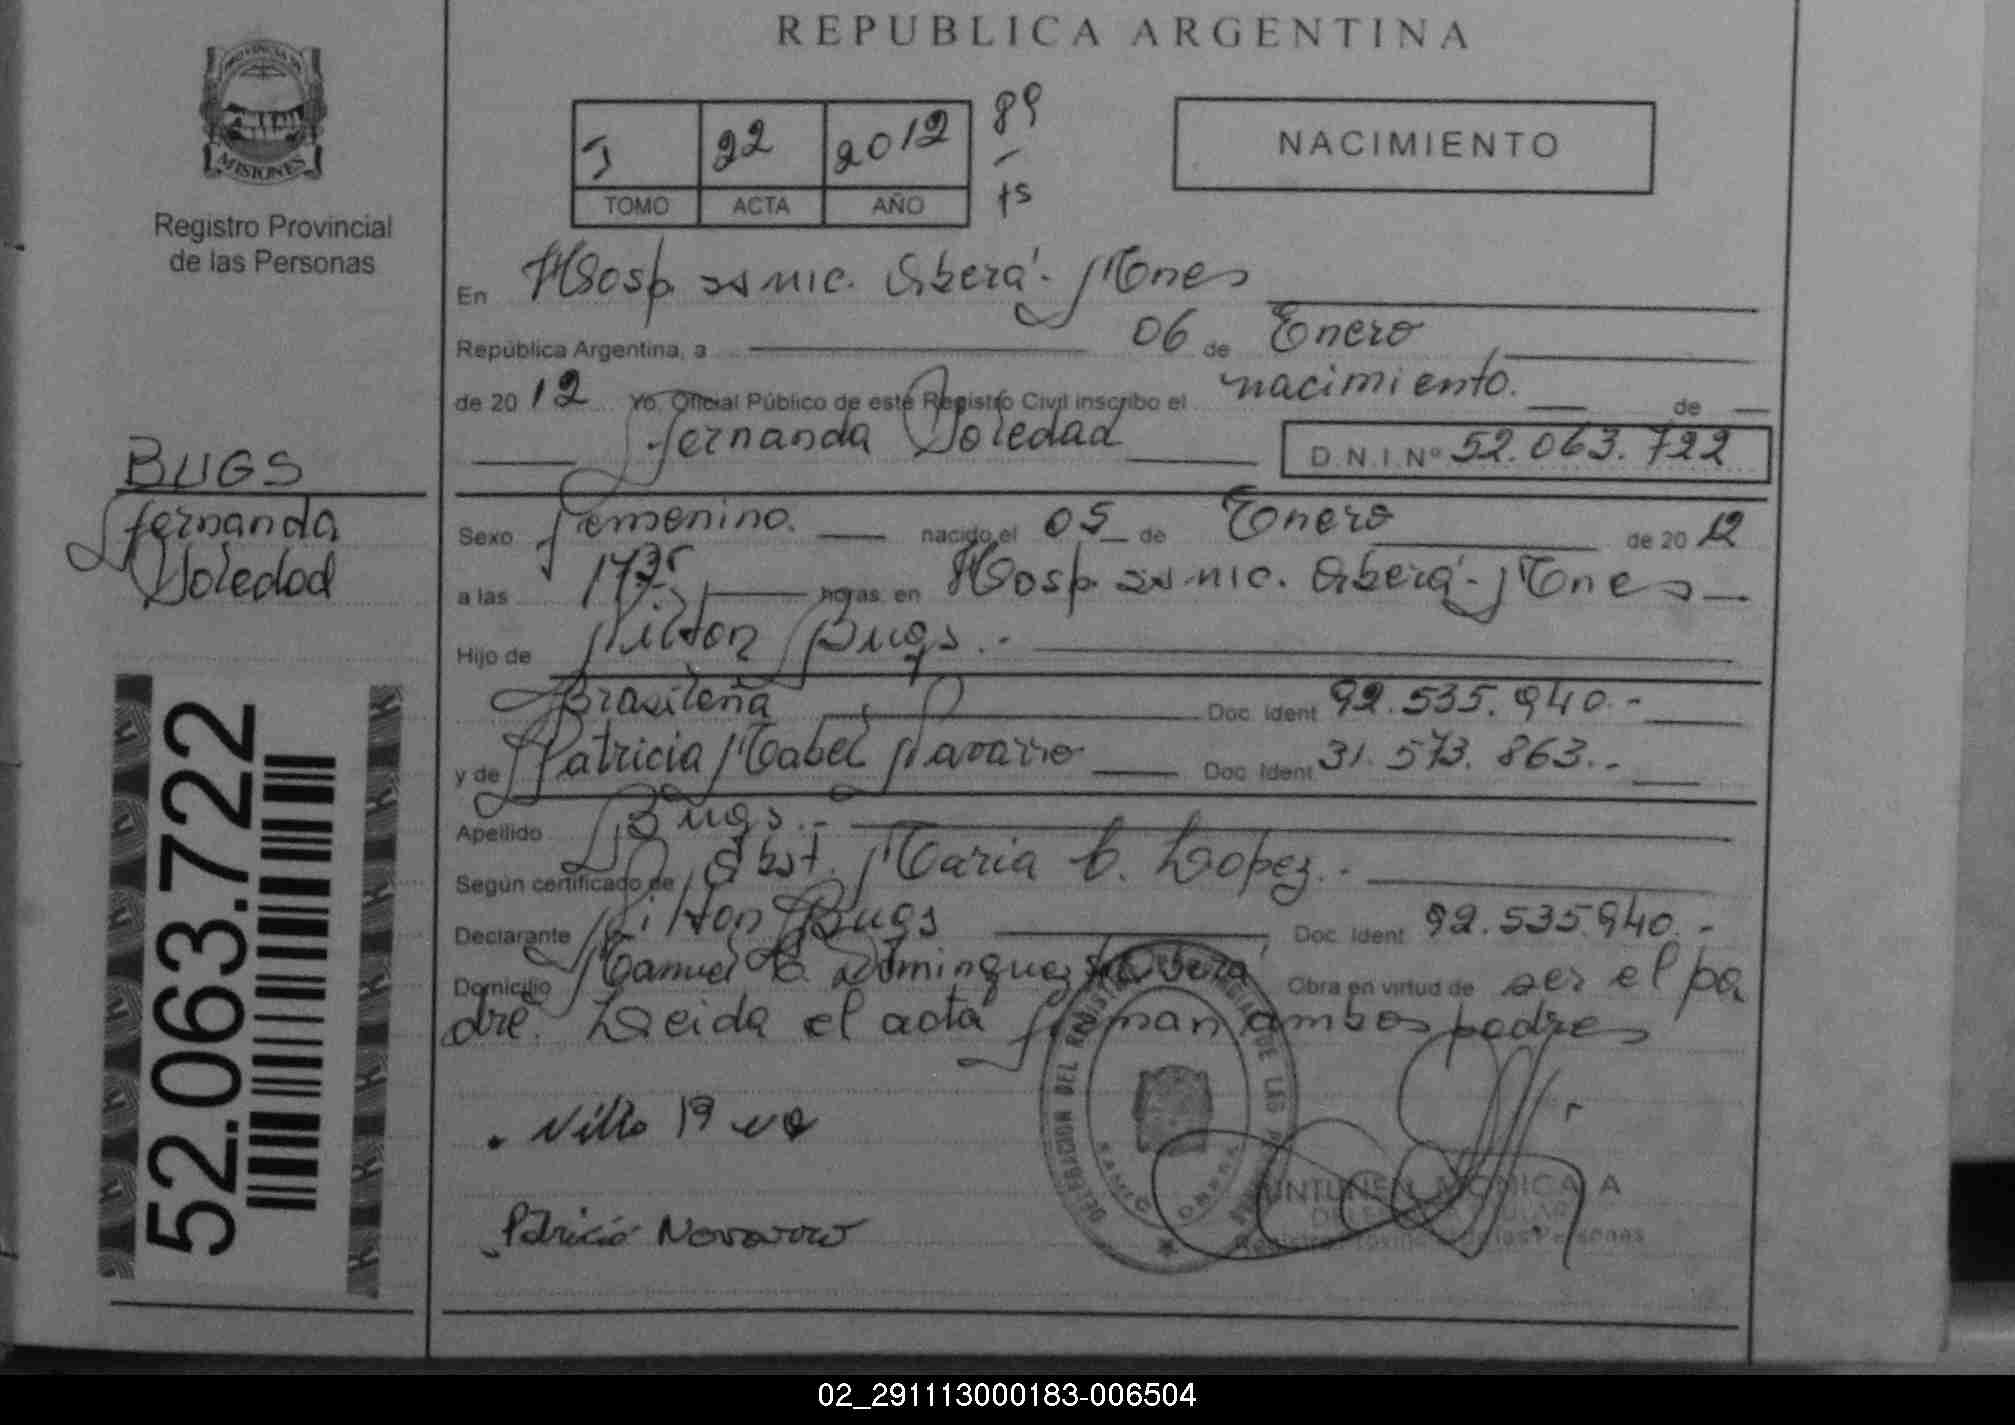 REPUBLICA ARGENTINA
PROVINCIA DE
MISIONES
Registro Provincial
de las Personas
22 2012 89
TOMO ACTA AÑO
15
NACIMIENTO
En Hosp. Oberá - Mnes
República Argentina, a 06 de Enero
de 2012 Yo, Oficial Público de este Registro Civil inscribo el nacimiento. de
Fernanda Soledad D.N.I.Nº 52.063.722
BUGS
Fernanda
Soledad
Sexo Femenino. nacido el 05 de Enero de 2012
a las 1735 horas, en Hosp. Oberá - Mnes
Hijo de Nilton Bugs.-
Brasileña Doc. Ident 92.535.940.-
y de Patricia Mabel Navarro Doc. Ident 31.573.863.-
Apellido Bugs.-
Según certificado de Obst. Maria C. Lopez.-
Declarante Nilton Bugs Doc. Ident 92.535.940.-
Domicilio Manuel Dominguez Oberá Obra en virtud de ser el pa
dre. Leida el acta firman ambos padres
Patricia Navarro
DELEGACION DEL REGISTRO PROVINCIAL DE LAS
OBERA
MONICA A
Registro Provincial de las Personas
52.063.722
02_291113000183-006504